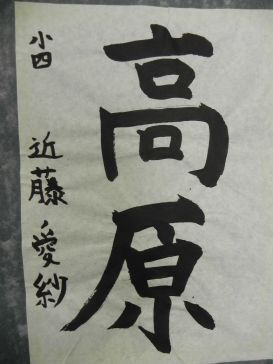 高原
小四 近藤愛紗